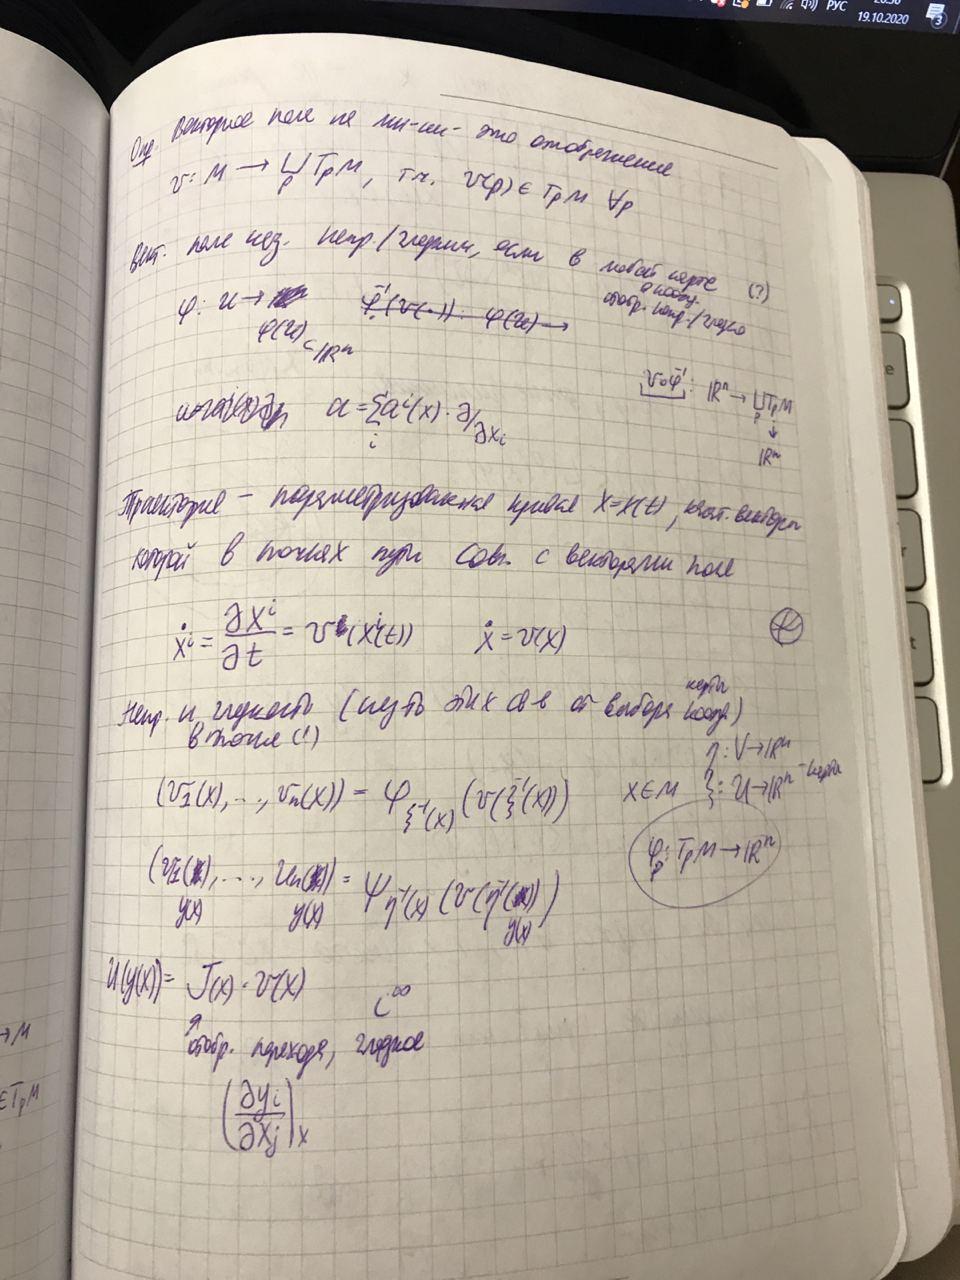 РУС
19.10.2020
3
Опр. Векторное поле на мн-ии - это отображение
v: M → ⊔_p T_pM, т.ч. v(p) ∈ T_pM ∀p
Вект. поле наз. непр./гладким, если в любой карте (?)
отобр. непр./гладко
φ: U → φ(U) ⊂ ℝⁿ
φ⁻¹(v(·)): φ(U) →
v∘φ⁻¹: ℝⁿ → ⊔_p T_pM
↓
ℝⁿ
a = Σ_i aⁱ(x) · ∂/∂x_i
Траектория - параметризованная кривая x = x(t), касат. векторы
которой в точках пути совп. с векторами поля
ẋⁱ = ∂xⁱ/∂t = vⁱ(xⁱ(t)) ẋ = v(x)
Непр. и гладкость (путь этих св-в от выбора коорд.)
карты
в точке (!)
η: V → ℝⁿ
(v₁(x), ..., vₙ(x)) = φ_{ξ⁻¹(x)}(v(ξ⁻¹(x))) x ∈ M ξ: U → ℝⁿ - карты
φ_p: T_pM → ℝⁿ
(u₁(y(x)), ..., uₙ(y(x))) = ψ_{η⁻¹(x)}(v(η⁻¹(y(x))))
U(y(x)) = J(x) · v(x)
C^∞
отобр. перехода, гладкое
(∂y_i/∂x_j)|_x
→ M
∈ T_pM